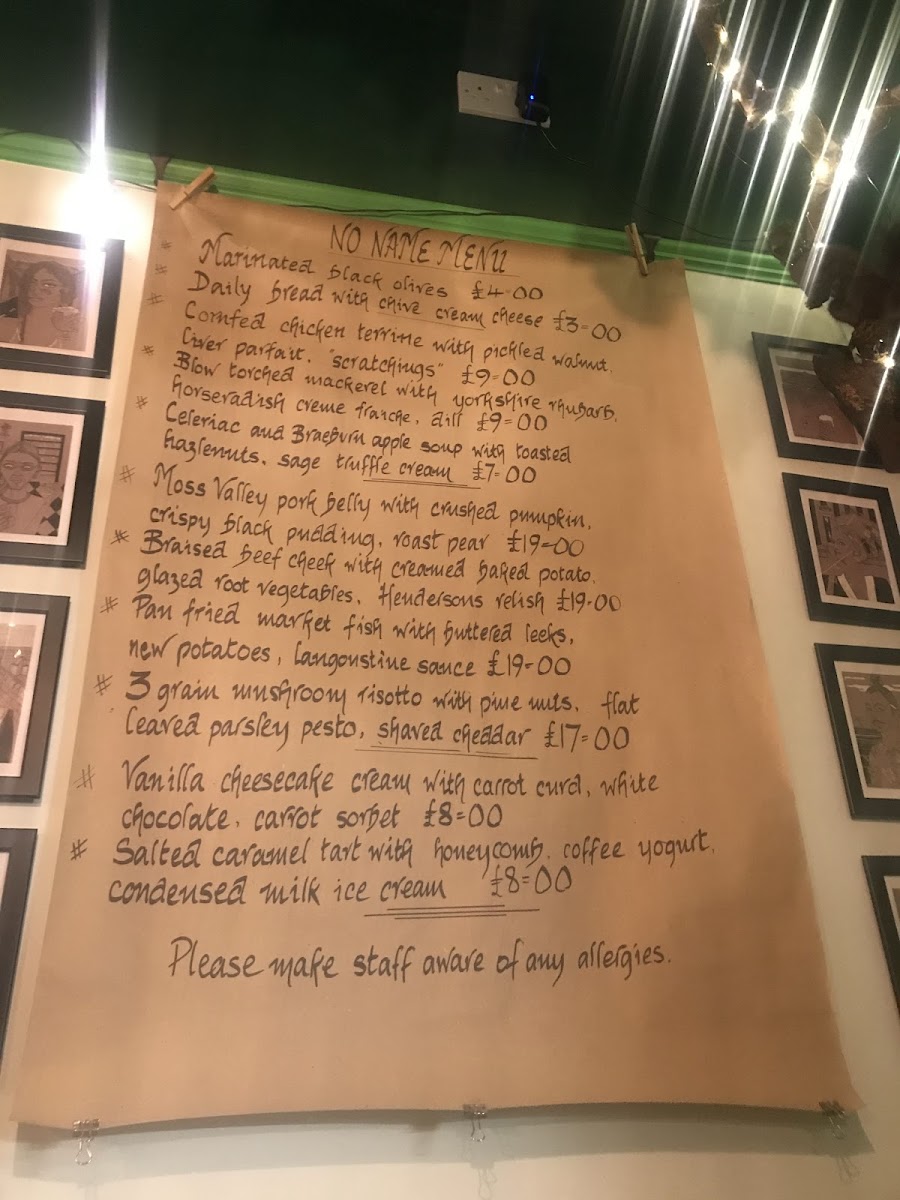 NO NAME MENU
# Marinated black olives £4-00
# Daily bread with chive cream cheese £3=00
# Cornfed chicken terrine with pickled walnut,
liver parfait, "scratchings" £9=00
# Blow torched mackerel with yorkshire rhubarb,
horseradish creme fraiche, dill £9=00
# Celeriac and Braeburn apple soup with toasted
hazlenuts, sage truffle cream £7=00
# Moss Valley pork belly with crushed pumpkin,
crispy black pudding, roast pear £19=00
# Braised beef cheek with creamed baked potato,
glazed root vegetables, Hendersons relish £19-00
# Pan fried market fish with buttered leeks,
new potatoes, langoustine sauce £19-00
# 3 grain mushroom risotto with pine nuts, flat
leaved parsley pesto, shaved cheddar £17=00
# Vanilla cheesecake cream with carrot curd, white
chocolate, carrot sorbet £8=00
# Salted caramel tart with honeycomb, coffee yogurt,
condensed milk ice cream £8=00
Please make staff aware of any allergies.